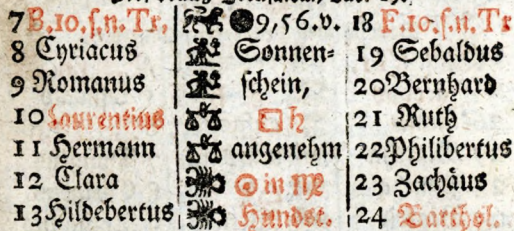 7 B.10.s.n.Tr. ●9,56.v. 18 F.10.s.n.Tr
8 Cyriacus Sonnen= 19 Sebaldus
9 Romanus schein, 20 Bernhard
10 Laurentius □ ♄ 21 Ruth
11 Hermann angenehm 22 Philibertus
12 Clara ☉ in ♍ 23 Zachäus
13 Hildebertus Hundst. 24 Barthol.